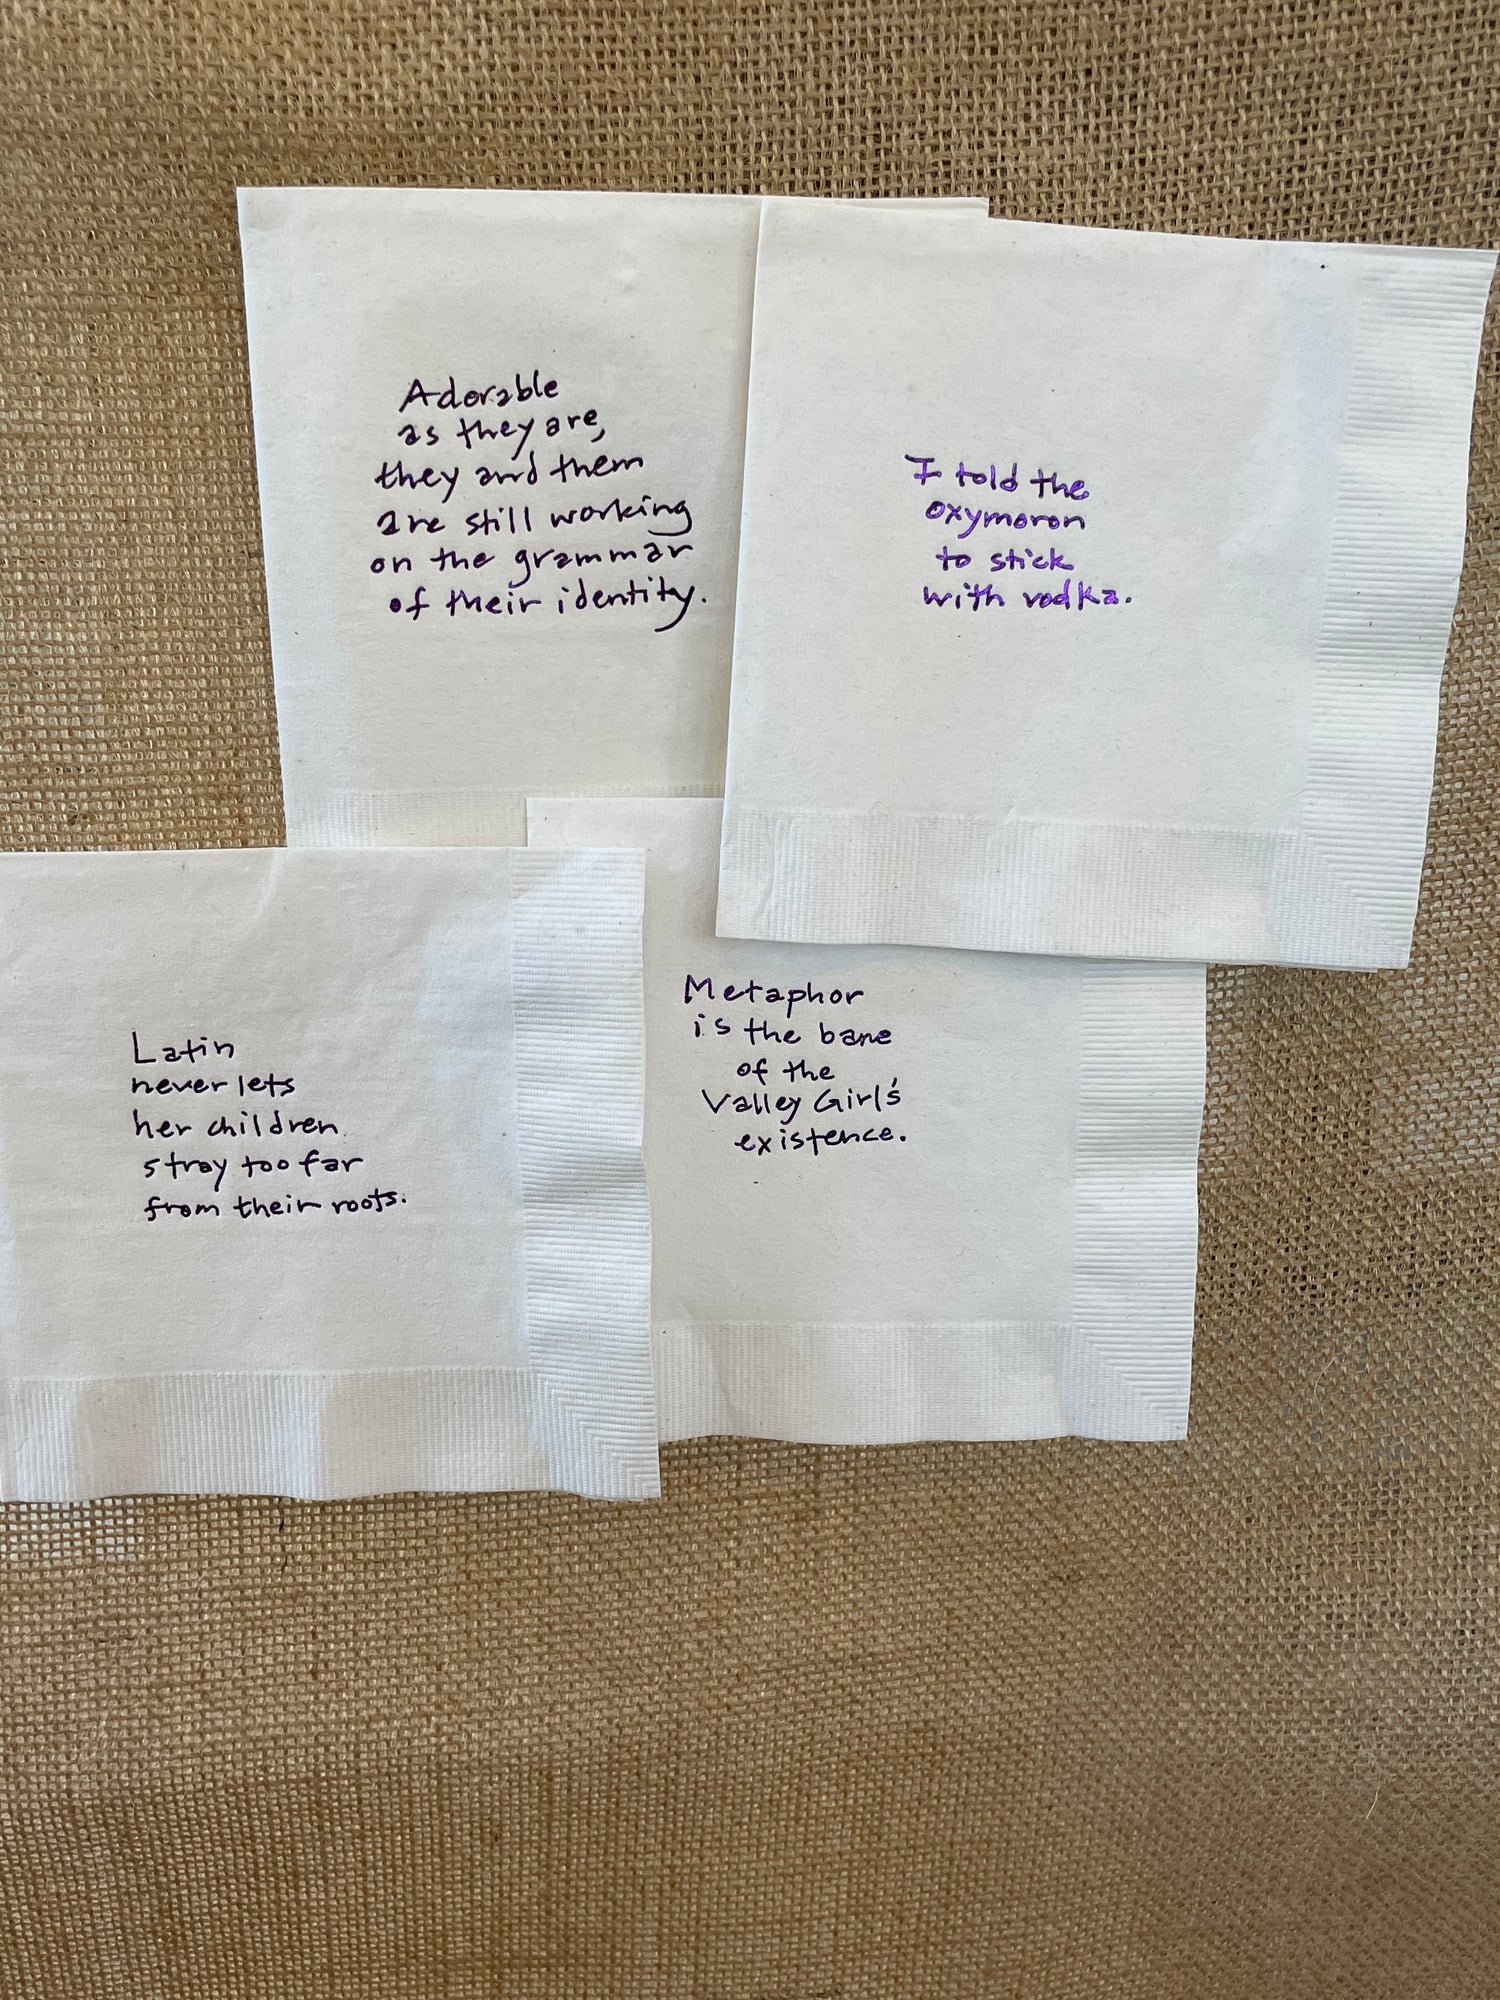 Adorable
as they are,
they and them
are still working
on the grammar
of their identity.
I told the
oxymoron
to stick
with vodka.
Latin
never lets
her children
stray too far
from their roots.
Metaphor
is the bane
of the
Valley Girl's
existence.